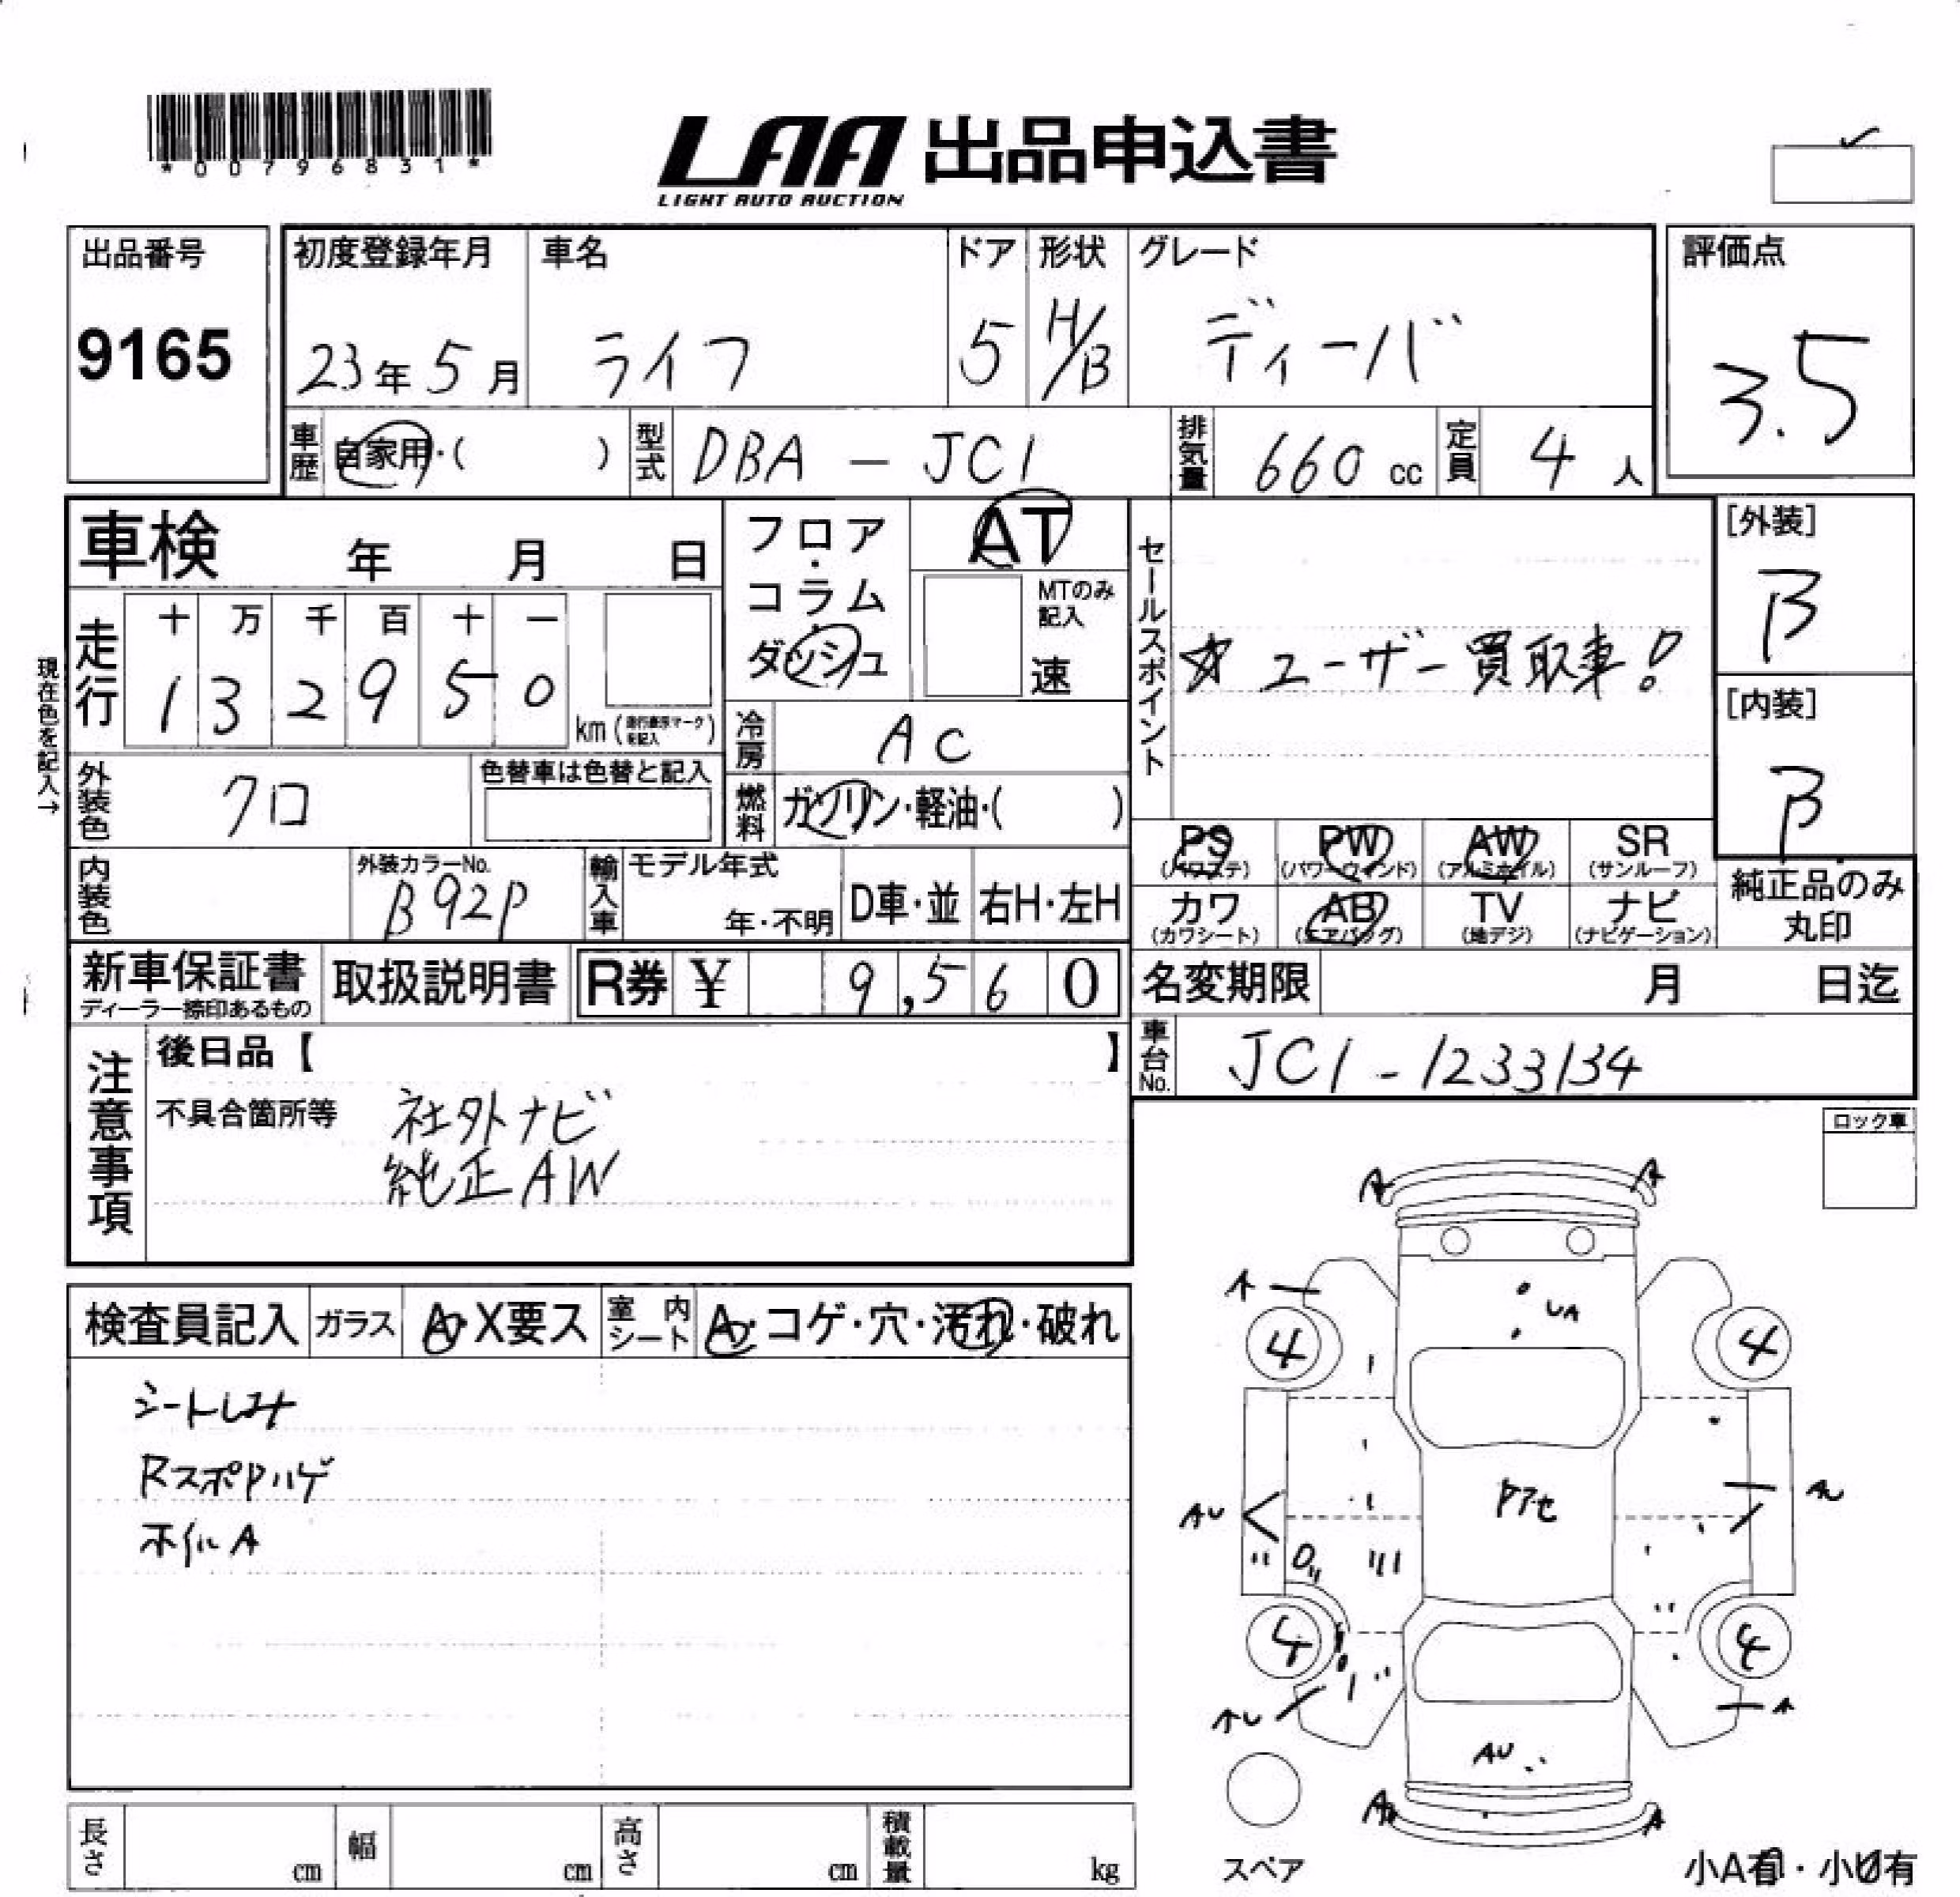 *00796831*
LAA 出品申込書
LIGHT AUTO AUCTION
出品番号
9165
初度登録年月
23年5月
車名
ライフ
ドア
5
形状
H/B
グレード
ディーバ
評価点
3.5
車歴
自家用・( )
型式
DBA - JC1
排気量
660 cc
定員
4 人
車検 年 月 日
フロア・コラム・ダッシュ
AT
MTのみ記入
速
セールスポイント
☆ユーザー買取車!
[外装]
B
[内装]
B
現在色を記入→
走行
十 万 千 百 十 一
1 3 2 9 5 0
km (走行表示マークを記入)
冷房
AC
外装色
クロ
色替車は色替と記入
燃料
ガソリン・軽油・( )
PS (パワステ)
PW (パワーウィンド)
AW (アルミホイル)
SR (サンルーフ)
カワ (カワシート)
AB (エアバッグ)
TV (地デジ)
ナビ (ナビゲーション)
純正品のみ丸印
内装色
外装カラーNo.
B92P
輸入車
モデル年式
年・不明
D車・並
右H・左H
新車保証書
ディーラー捺印あるもの
取扱説明書
R券 ¥ 9,560
名変期限 月 日迄
車台No.
JC1-1233134
注意事項
後日品【 】
不具合箇所等
社外ナビ
純正AW
ロック車
検査員記入
ガラス
A・X要ス
室内シート
A・コゲ・穴・汚れ・破れ
シートしみ
RスポPハゲ
ホイルA
A A
A
UA
4 4
Pアセ
AU
4 4
AU
A
AU
A
スペア
小A有・小U有
長さ cm
幅 cm
高さ cm
積載量 kg